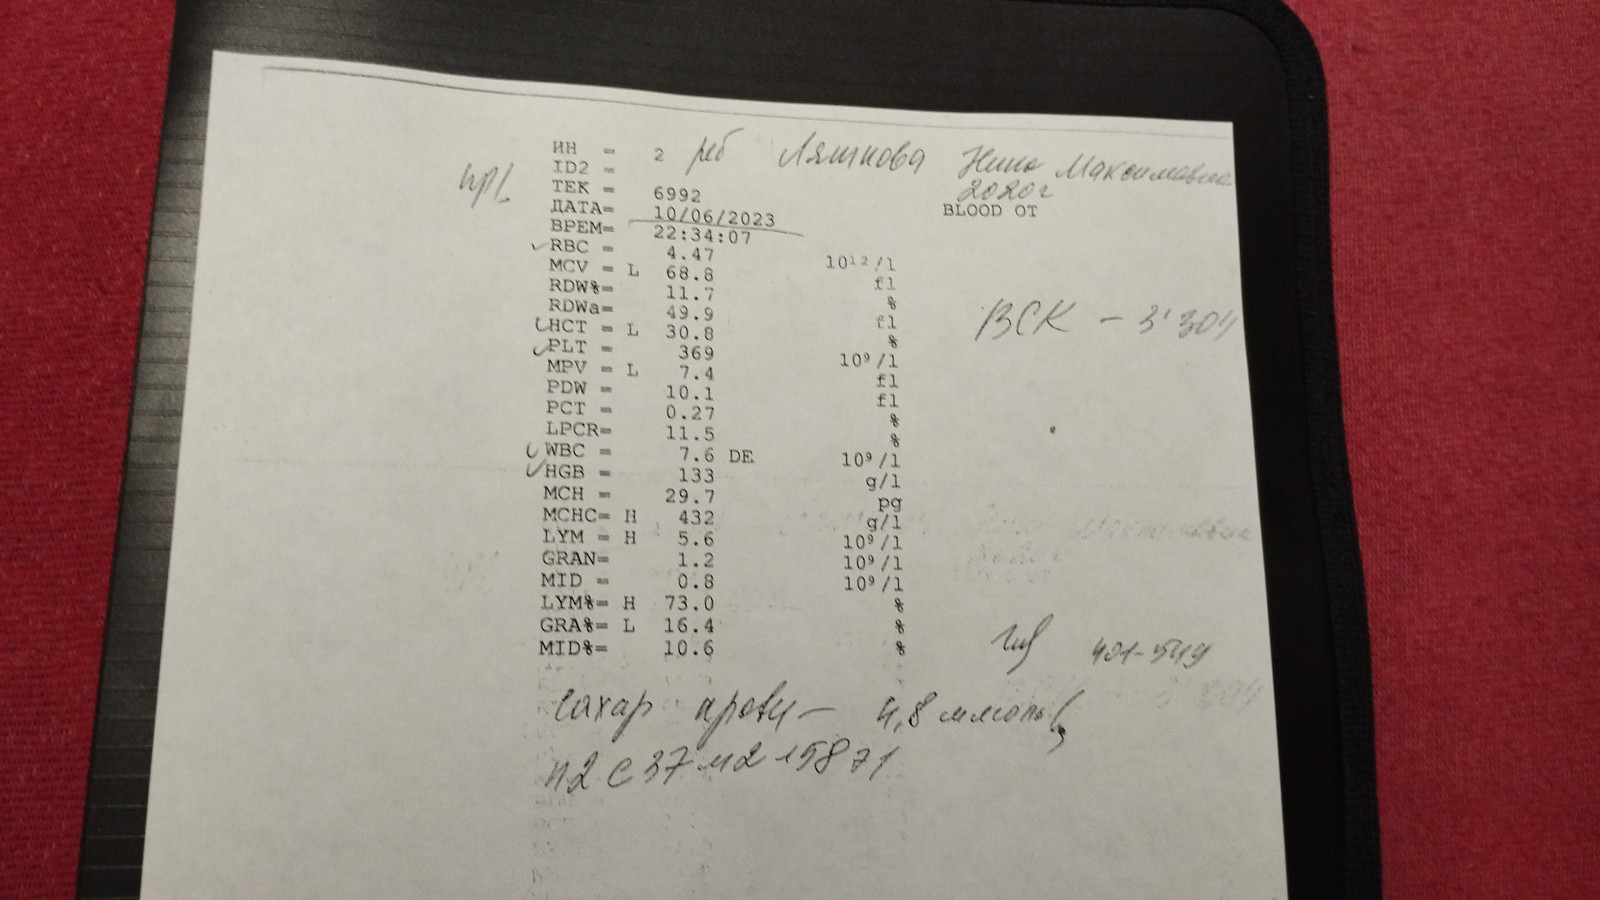 ИН = 2 реб Ляшкова Нина Максимовна
ID2 = 2020г
ТЕК = 6992 BLOOD OT
ДАТА= 10/06/2023
ВРЕМ= 22:34:07
RBC = 4.47 10¹²/l
MCV = L 68.8 fl
RDW%= 11.7 %
RDWa= 49.9 fl
HCT = L 30.8 %
PLT = 369 10⁹/l
MPV = L 7.4 fl
PDW = 10.1 fl
PCT = 0.27 %
LPCR= 11.5 %
WBC = 7.6 DE 10⁹/l
HGB = 133 g/l
MCH = 29.7 pg
MCHC= H 432 g/l
LYM = H 5.6 10⁹/l
GRAN= 1.2 10⁹/l
MID = 0.8 10⁹/l
LYM%= H 73.0 %
GRA%= L 16.4 %
MID%= 10.6 %
ВСК - 3'30"
401-549
сахар крови - 4,8 ммоль/
п2 с37 м2